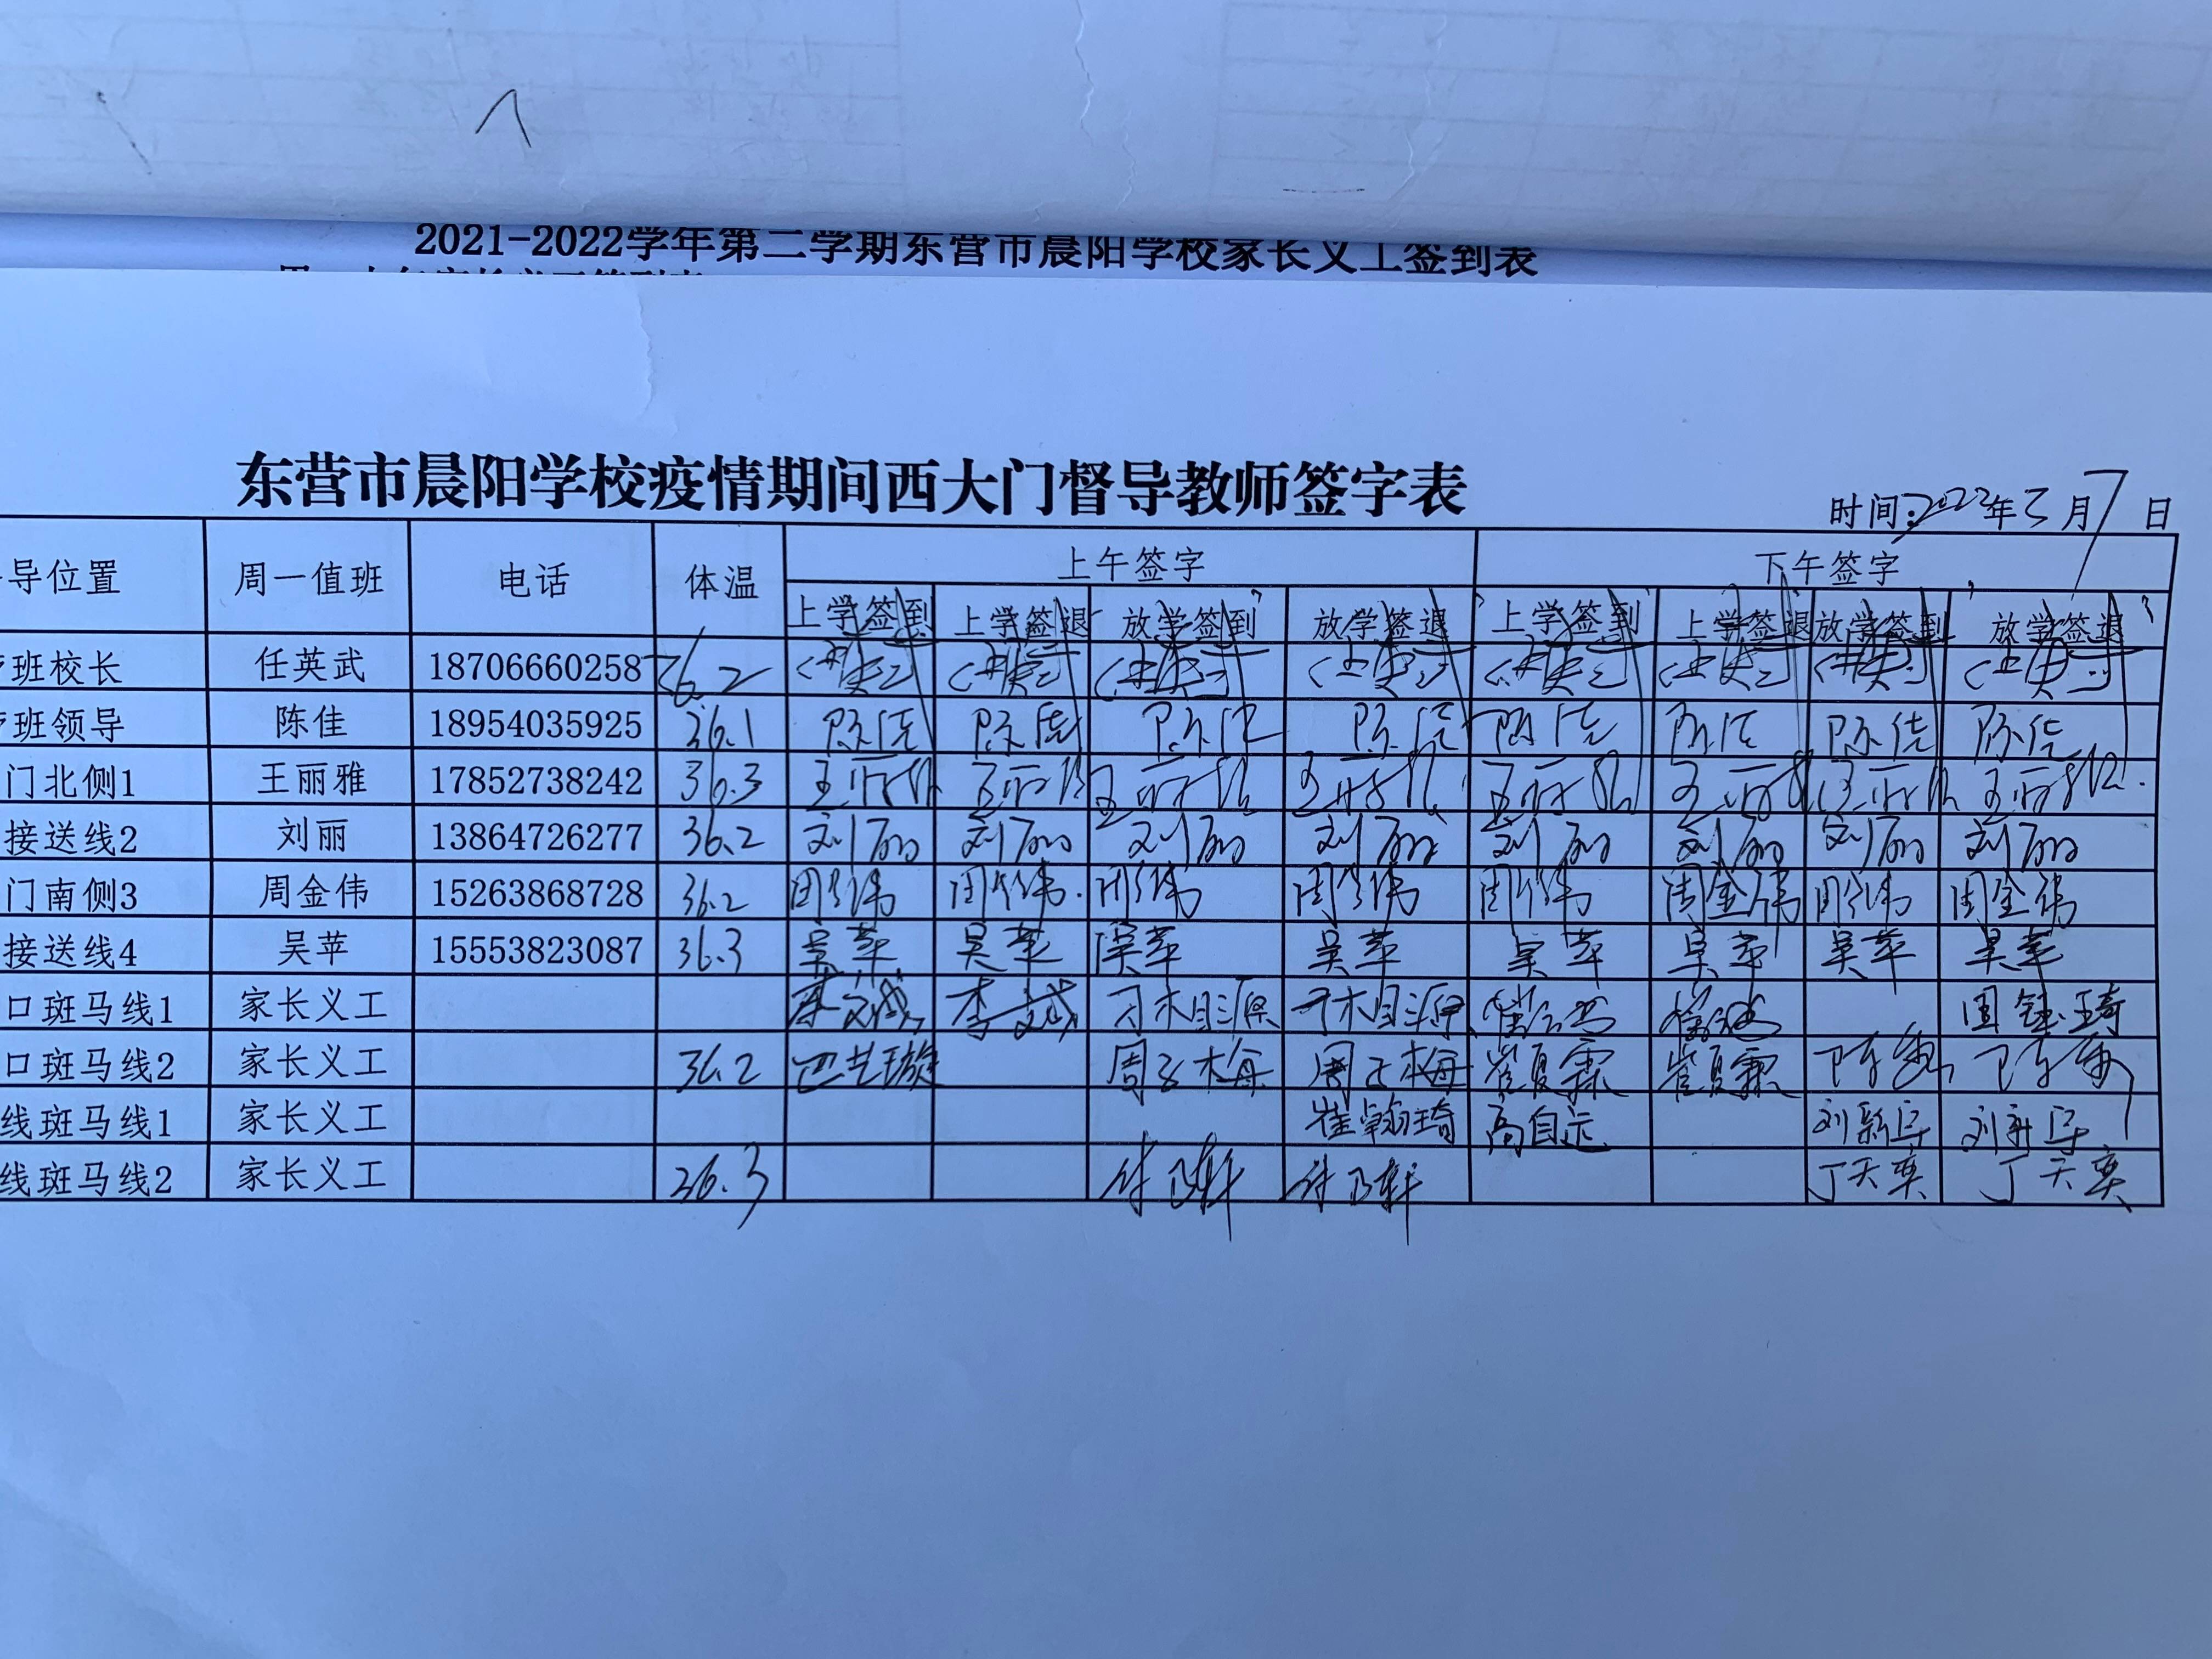 2021-2022学年第二学期东营市晨阳学校家长义工签到表
东营市晨阳学校疫情期间西大门督导教师签字表
时间:2022年3月7日
导位置 周一值班 电话 体温 上午签字 下午签字
上学签到 上学签退 放学签到 放学签退 上学签到 上学签退 放学签到 放学签退
班校长 任英武 18706660258 36.2
班领导 陈佳 18954035925 36.1 陈佳 陈佳 陈佳 陈佳 陈佳 陈佳 陈佳 陈佳
门北侧1 王丽雅 17852738242 36.3 王丽雅 王丽雅 王丽雅 王丽雅 王丽雅 王丽雅 王丽雅 王丽雅
接送线2 刘丽 13864726277 36.2 刘丽 刘丽 刘丽 刘丽 刘丽 刘丽 刘丽 刘丽
门南侧3 周金伟 15263868728 36.2 周金伟 周金伟 周金伟 周金伟 周金伟 周金伟 周金伟 周金伟
接送线4 吴苹 15553823087 36.3 吴苹 吴苹 吴苹 吴苹 吴苹 吴苹 吴苹 吴苹
口斑马线1 家长义工
口斑马线2 家长义工 36.2 巴艺璇 周子梅 周子梅 崔夏霖 崔夏霖
线斑马线1 家长义工 崔翰琦
线斑马线2 家长义工 36.3 丁天奕 丁天奕